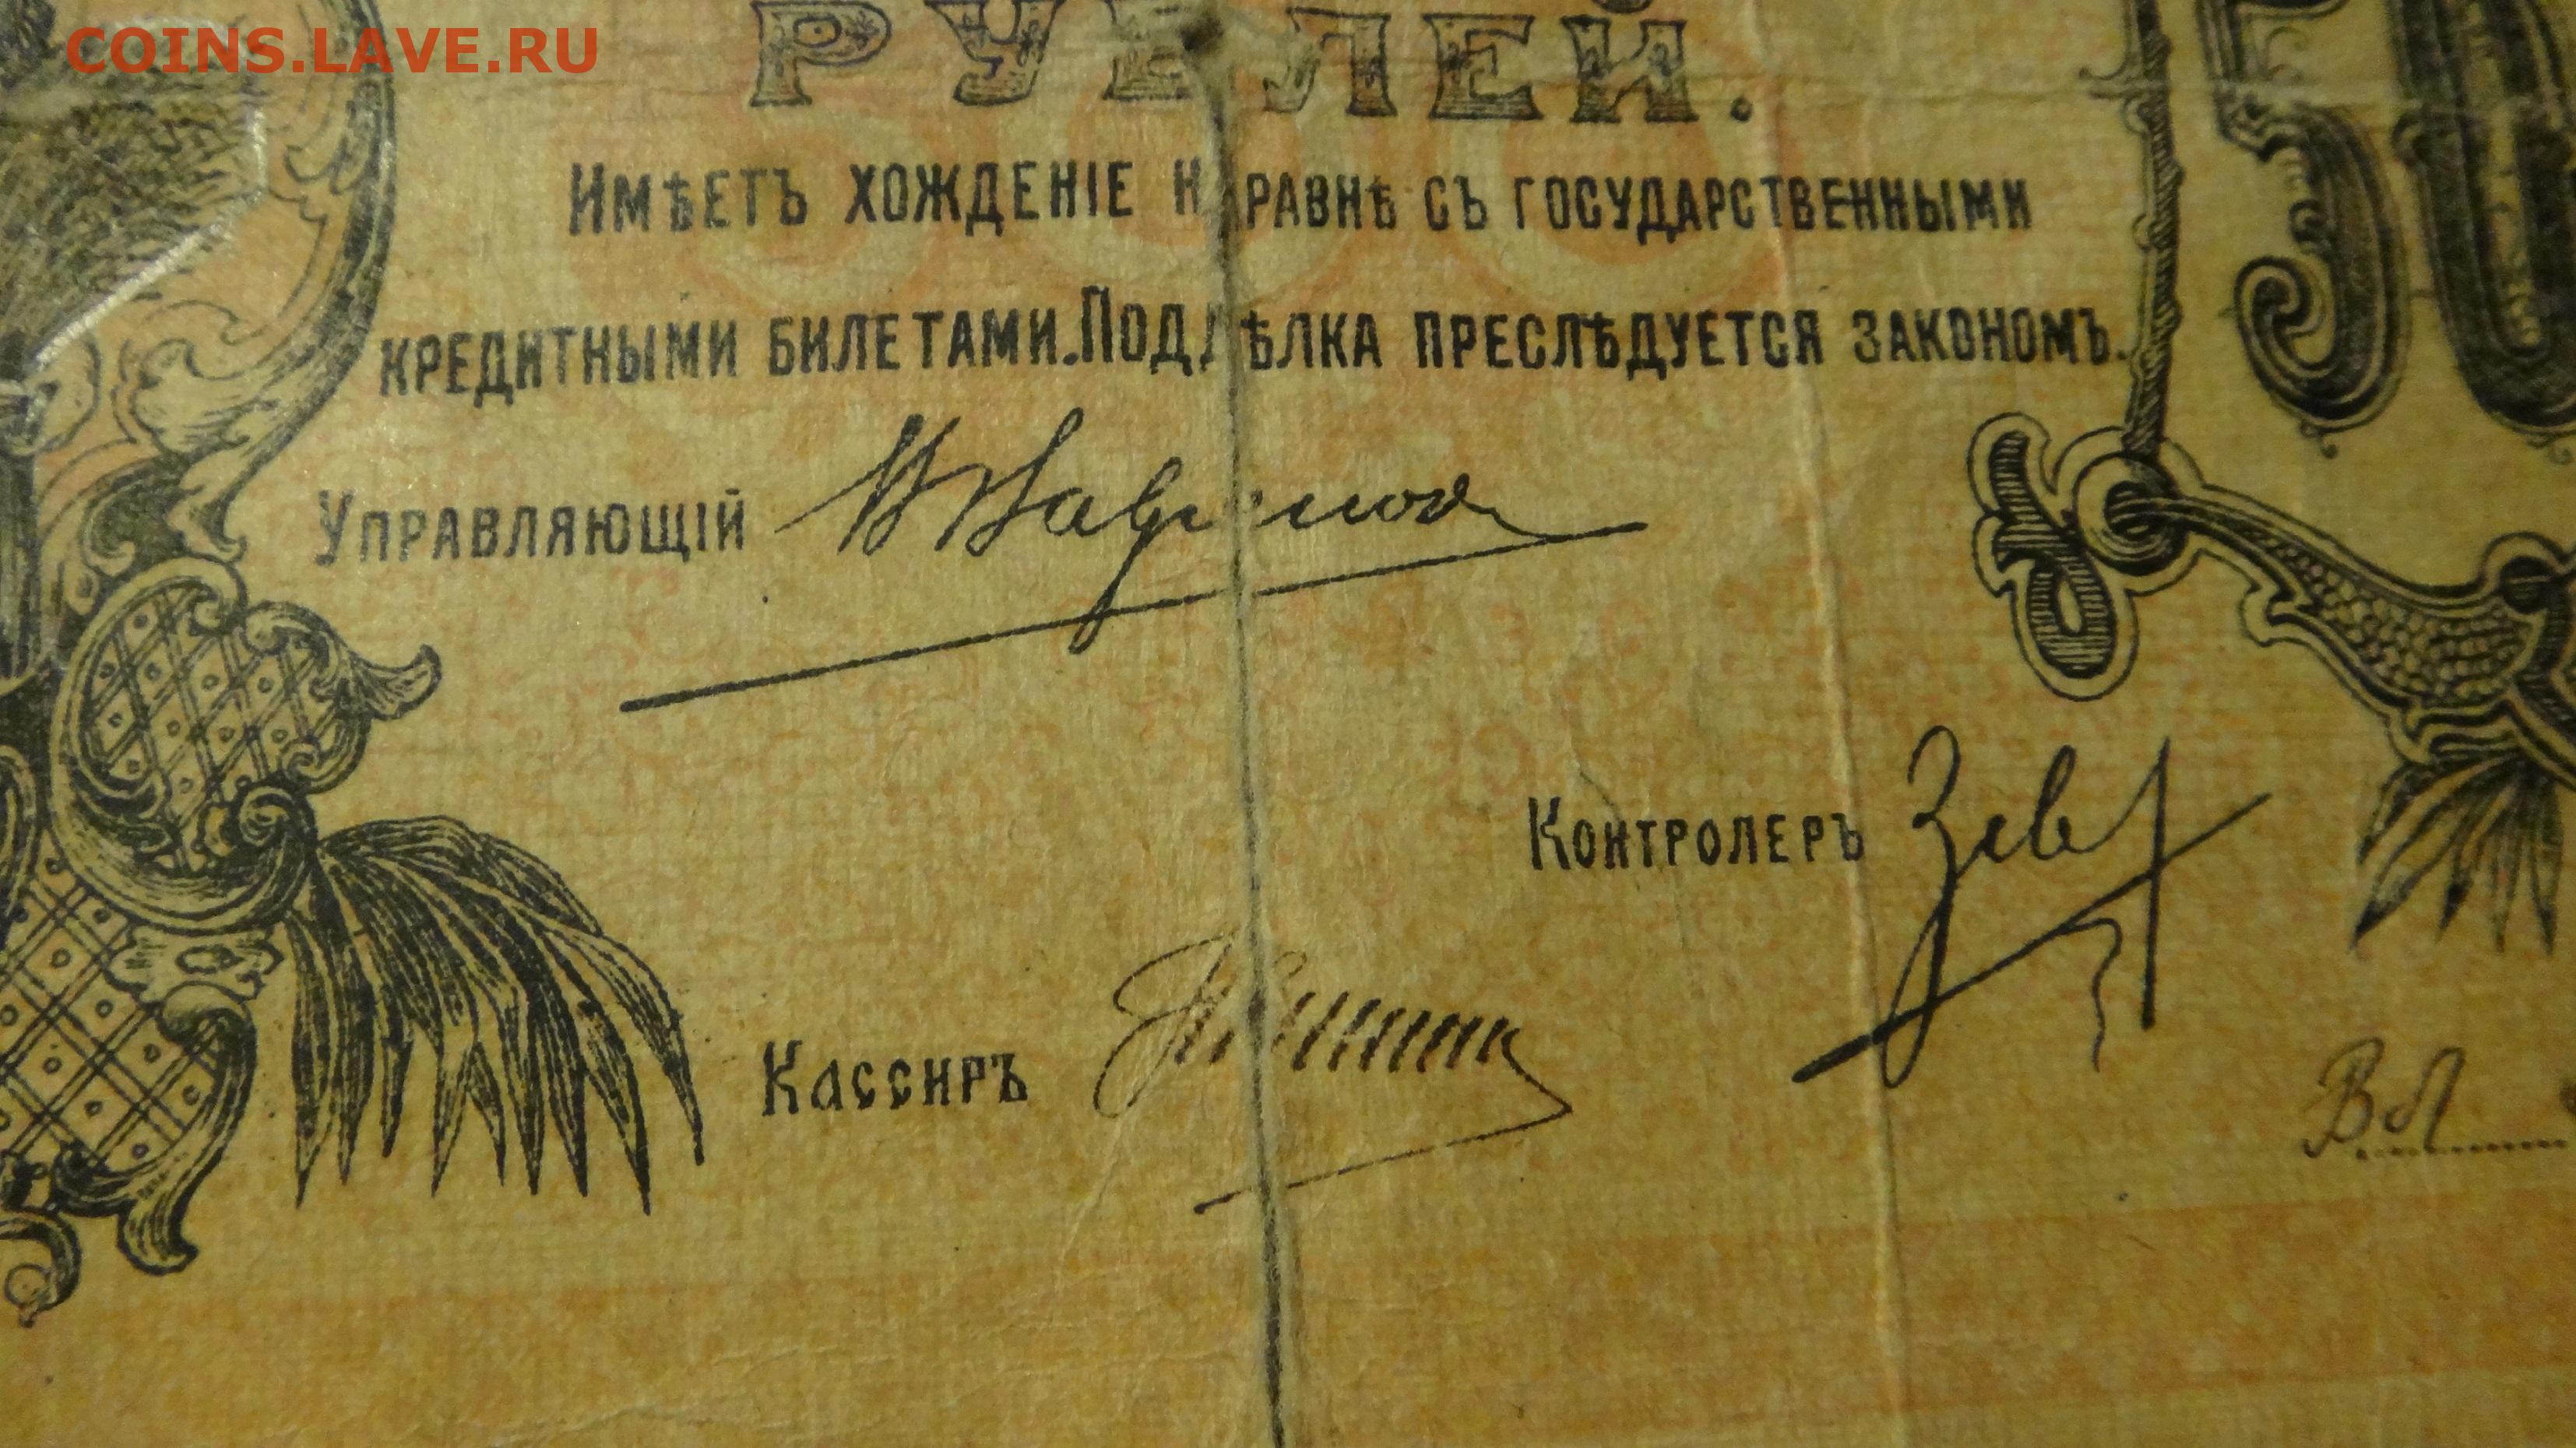 COINS.LAVE.RU
РУБЛЕЙ.
50
Имѣетъ хожденіе наравнѣ съ государственными
кредитными билетами. Поддѣлка преслѣдуется закономъ.
Управляющій
Контролеръ
Кассиръ